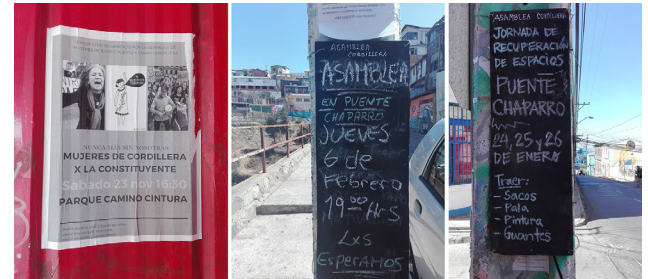 NUNCA MÁS SIN NOSOTRAS
MUJERES DE CORDILLERA
X LA CONSTITUYENTE
Sabado 23 nov 16:30
PARQUE CAMINO CINTURA
ASAMBLEA
CORDILLERA
ASAMBLEA
EN PUENTE
CHAPARRO
JUEVES
6 de
Febrero
19:00 Hrs
Lxs
Esperamos
ASAMBLEA CORDILLERA
JORNADA DE
RECUPERACIÓN
DE ESPACIOS
PUENTE
CHAPARRO
24, 25 y 26
DE ENERO
Traer:
- Sacos
- Pala
- Pintura
- Guantes